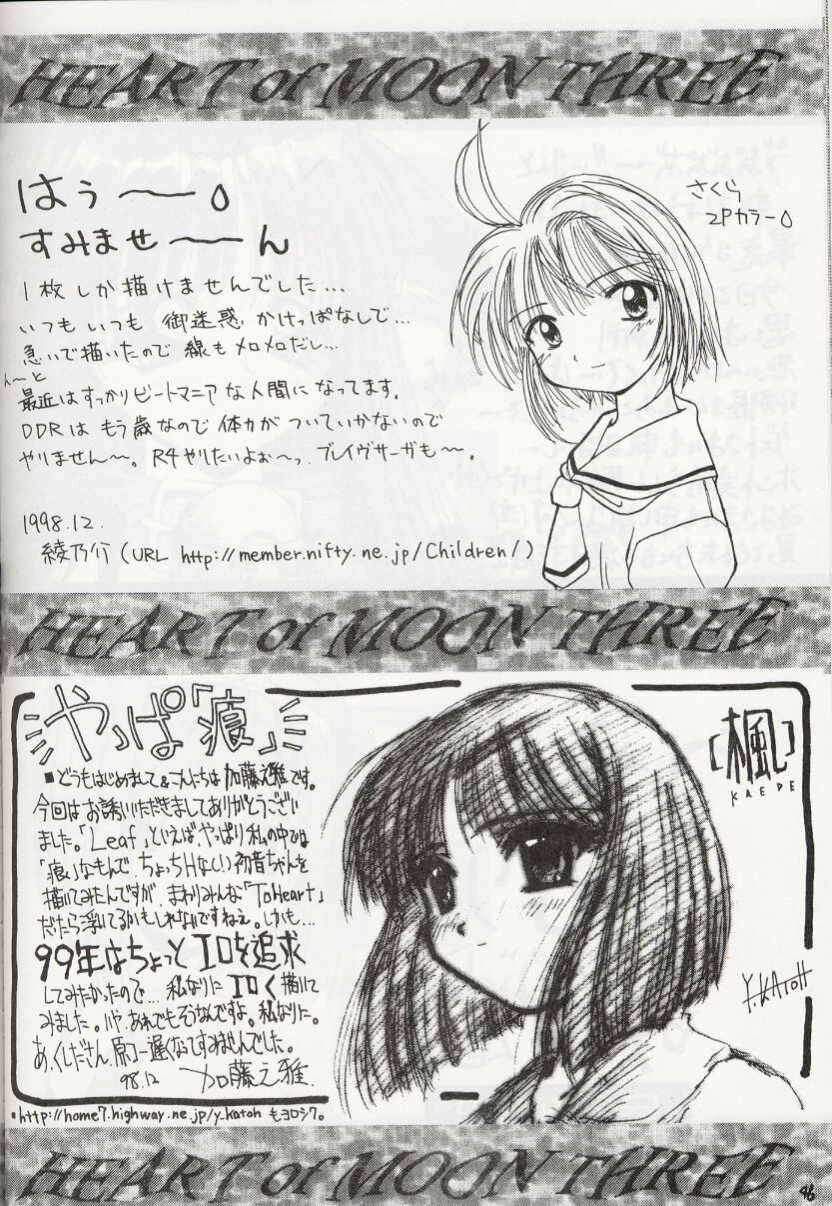 HEART of MOON THREE
はぅ〜〜。
すみませ〜〜ん
さくら
2Pカラー。
1枚しか描けませんでした…
いつもいつも 御迷惑 かけっぱなしで…
急いで描いたので 線も メロメロだし…
最近は すっかり ビートマニア な人間に なってます。
DDRは もう歳なので 体力が ついていかないので
やりません〜。 R4やりたいよぉ〜っ ブレイヴサーガも〜。
1998.12.
綾乃介 (URL http://member.nifty.ne.jp/Children/)
HEART of MOON THREE
やっぱ「痕」
[楓]
KAEDE
■どうもはじめまして&こんにちは 加藤之雅です。
今回はお誘いいただきましてありがとうござい
ました。「Leaf」といえば、やっぱり私の中では
「痕」なもんで、ちょっちHな(?)初音ちゃんを
描いてみたんですが、まわりみんな「ToHeart」
だたら浮いてるかもしれないですねぇ。しかも…
99年はちょっと エロを追求
してみたかったので… 私なりに エロく 描いて
みました。いや、あれでもそうなんですよ。私なりに。
あ、くしださん、原コー遅くなってすみませんでした。
98.12 加藤之雅.
Y.KATOH
・http://home7.highway.ne.jp/y_katoh もヨロシク。
HEART of MOON THREE
46